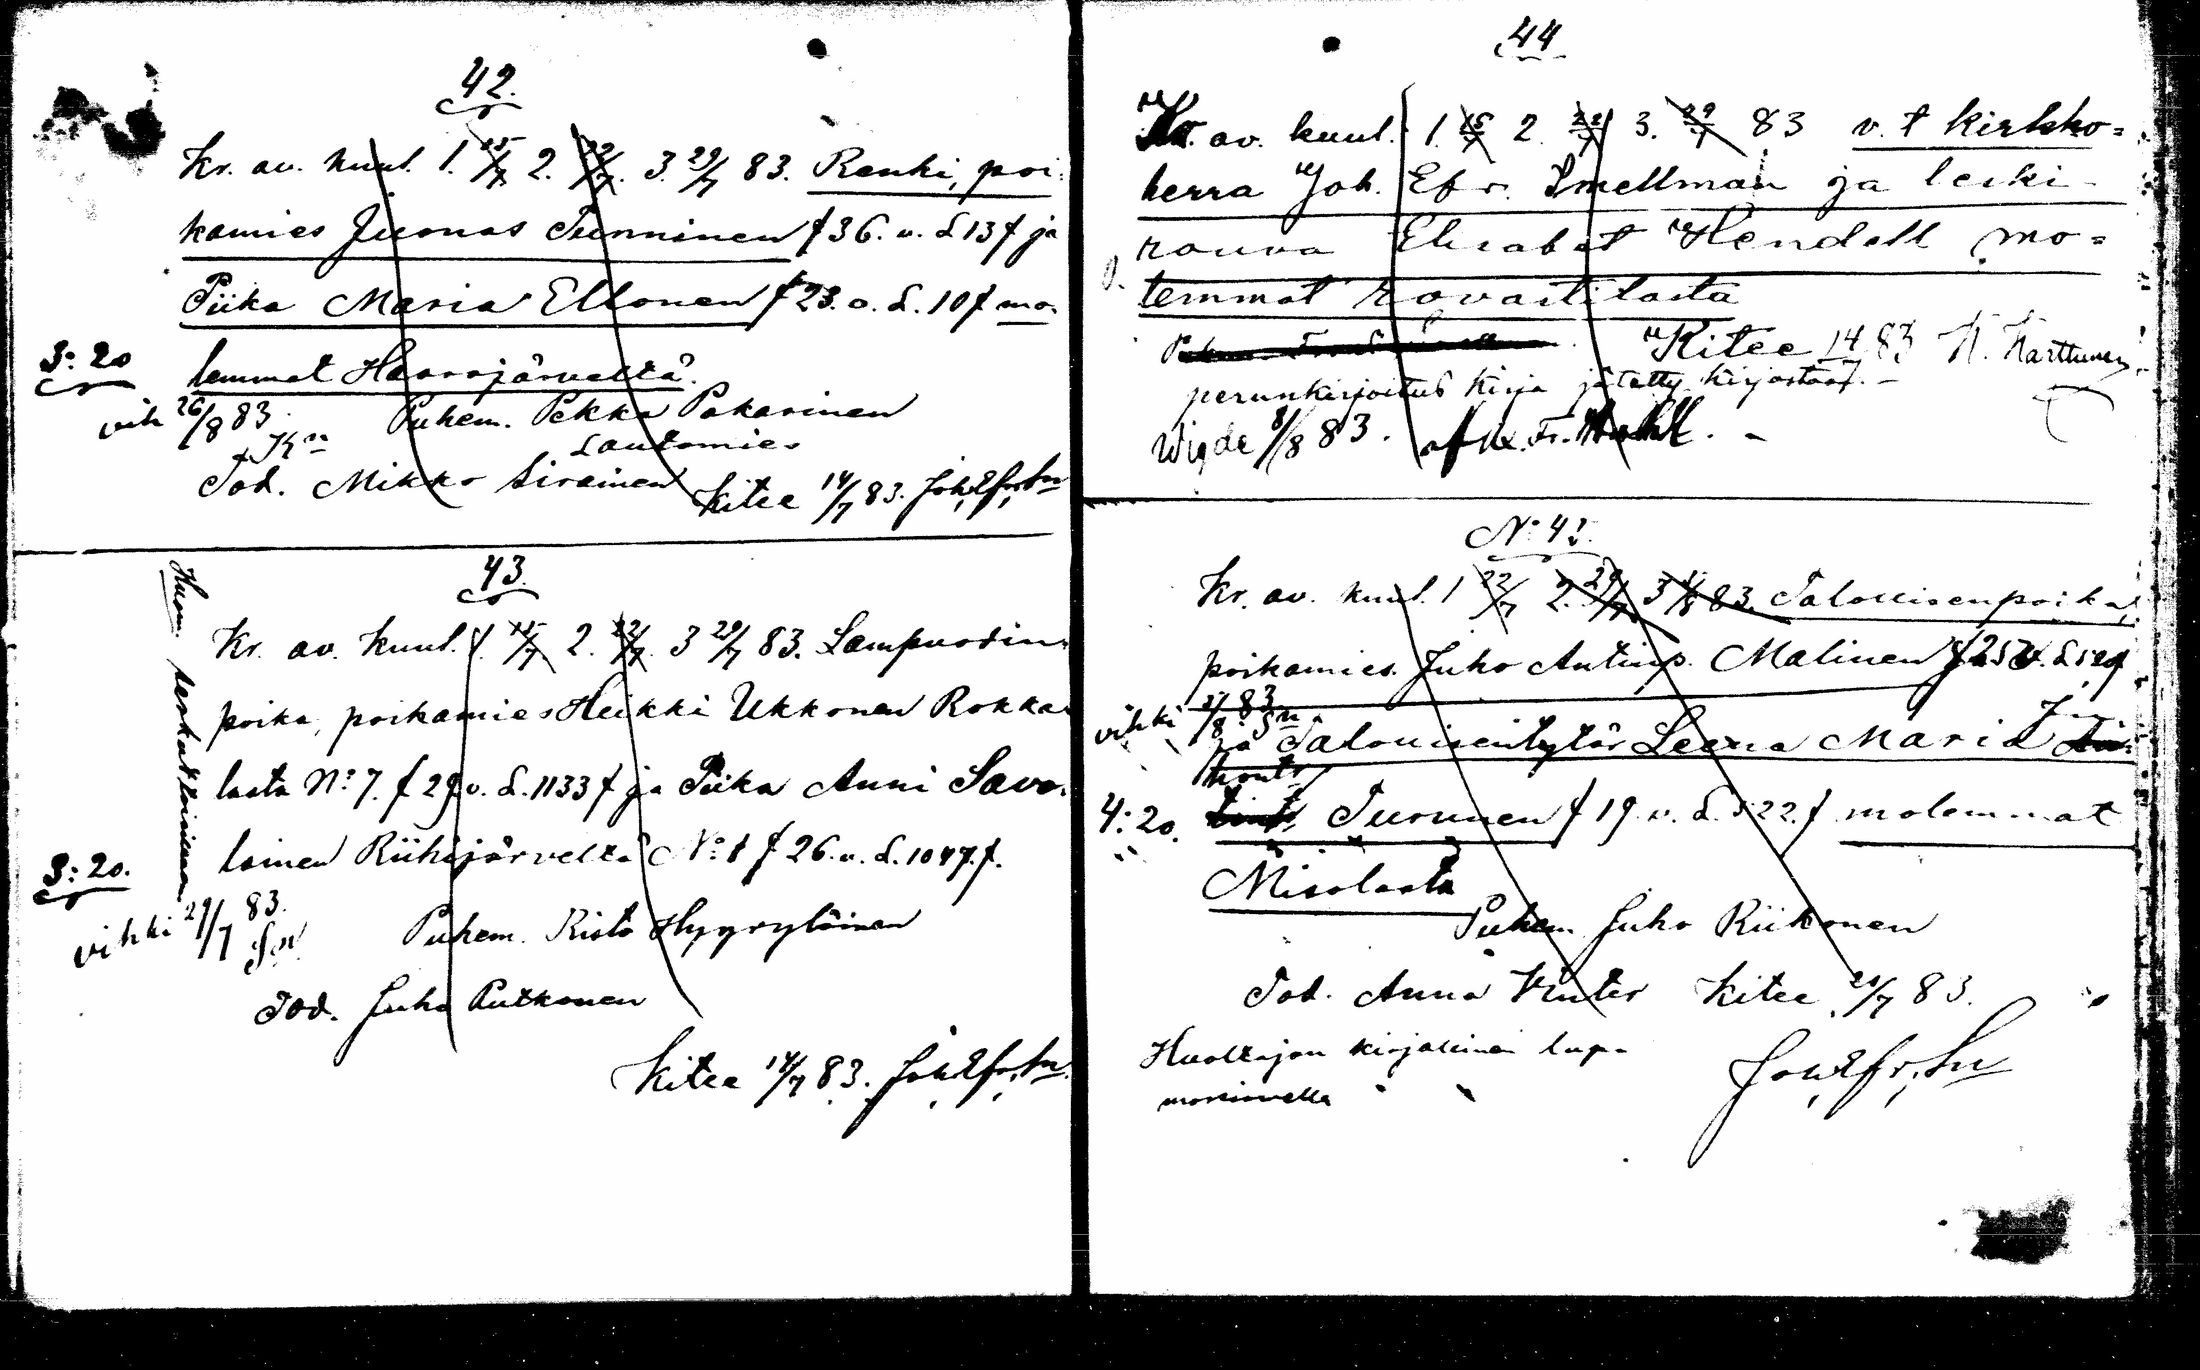 42.
Kr. av. kuul. 1. 15/7 2. 22/7. 3. 29/7 83. Renki, poi-
kamies Juonas Tunninen f 36. v. S 13 f ja
Piika Maria Eltonen f 23. v. S. 10 f mo-
3:20 lemmat Haarajärveltä.
vih 26/8 83. Puhem. Pekka Pakarinen
Kn Lautamies
Tod. Mikko Sirainen Kitee 14/7 83. Joh. Efr. Sn
43.
Kr. av. kuul. 1. 15/7. 2. 22/7. 3 29/7 83. Lampuodin-
poika, poikamies Heikki Ukkonen Rokka-
lasta No: 7. f 29 v. S. 1133 f ja Piika Anni Savo-
lainen Riihijärveltä No: 1 f 26. v. S. 1047. f.
3:20.
vihki 29/7 83. Sn
Puhem. Risto Hyyryläinen
Tod. Juho Putkonen
Kitee 14/7 83. Joh. Efr. Sn.
Huom.
44
Kr. av. kuul. 1. 15/7 2. 22/7 3. 29/7 83 v. t kirkko=
herra Joh. Efr. Smellman ja leski-
rouva Elisabet Hendell mo=
lemmat rovastilasta
Kitee 14/7 83 K. Karttunen
perunkirjoitus kirja jätetty kirjastoon. -
Wigde 8/8 83. af
No: 45.
Kr. av. kuul. 1 22/7 2. 29/7 3 5/8 83. Talollisenpoika,
poikamies. Juho Antinp. Malinen f 25 v. S 529
vihki 27/8 83 Sn
ja Talollisentytär Leena Maria
4:20. Tuononen f 19. v. S. 522. f molemmat
Misolasta
Puhem. Juho Riikonen
Tod. Anna Vinter Kitee 21/7 83.
Huoltajan kirjallinen lupa
morsiamella
Joh. Efr. Sn